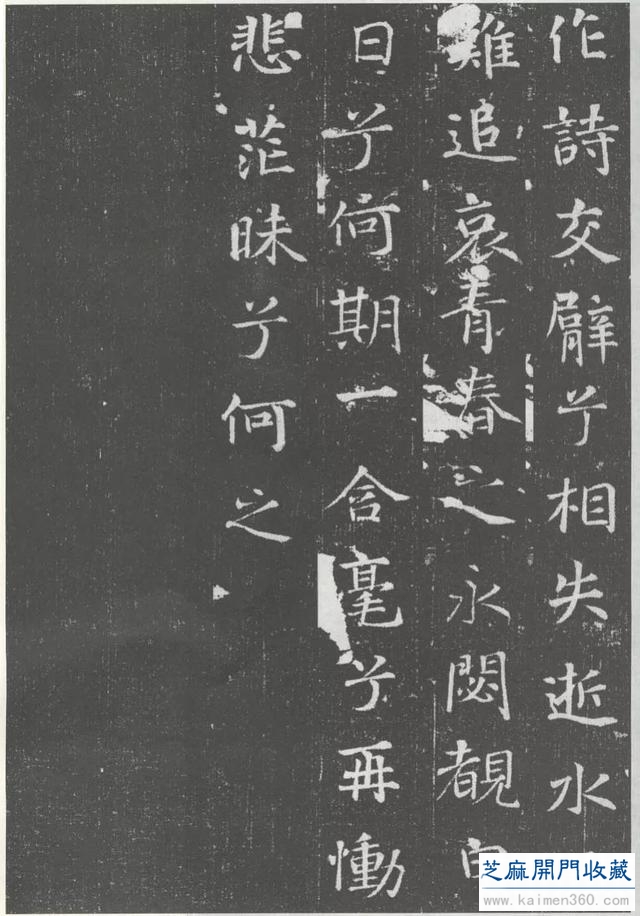 作詩交臂兮相失逝水
難追哀青春之永閟覩白
日兮何期一含毫兮再慟
悲茫昧兮何之
芝麻開門收藏
www.kaimen360.com